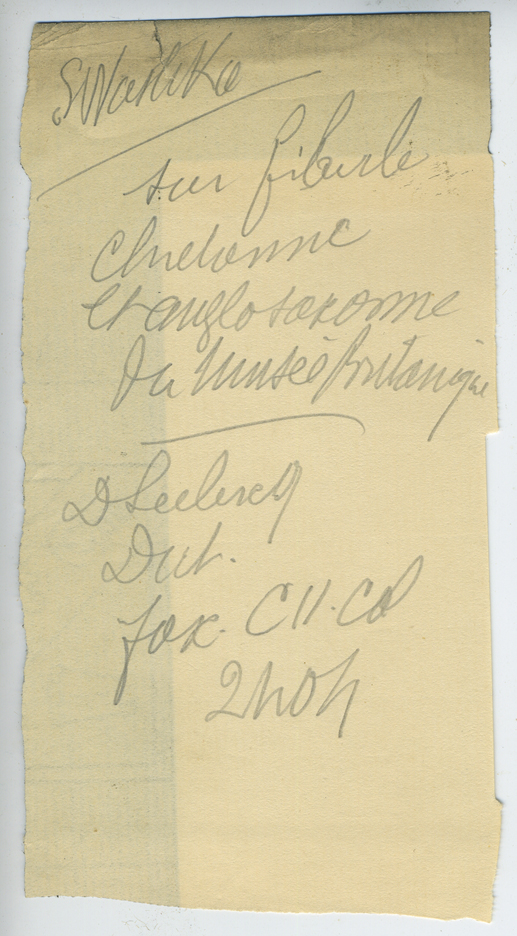 Swastika
sur fibule
Chretienne
et anglo saxonne
du Musée Britanique
D Leclercq
Dict.
fax. CII. Col
2404